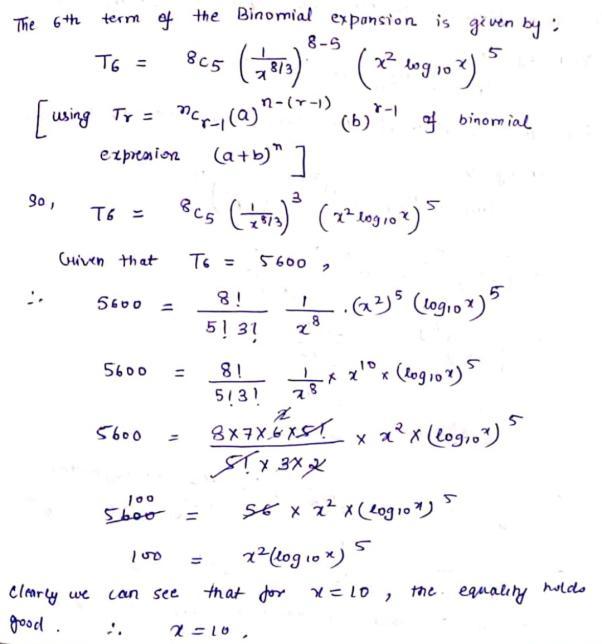 The 6th term of the Binomial expansion is given by :
T6 = 8C5 (1/x^8/3)^8-5 (x^2 log10 x)^5
[using Tr = nCr-1 (a)^n-(r-1) (b)^r-1 of binomial
expression (a+b)^n ]
So, T6 = 8C5 (1/x^8/3)^3 (x^2 log10 x)^5
Given that T6 = 5600 ,
∴ 5600 = 8!/5! 3! 1/x^8 . (x^2)^5 (log10 x)^5
5600 = 8!/5! 3! 1/x^8 × x^10 × (log10 x)^5
5600 = 8×7×6×5!/5! × 3×2 × x^2 × (log10 x)^5
100
5600 = 56 × x^2 × (log10 x)^5
100 = x^2 (log10 x)^5
Clearly we can see that for x = 10 , the equality holds
good . ∴ x = 10 .